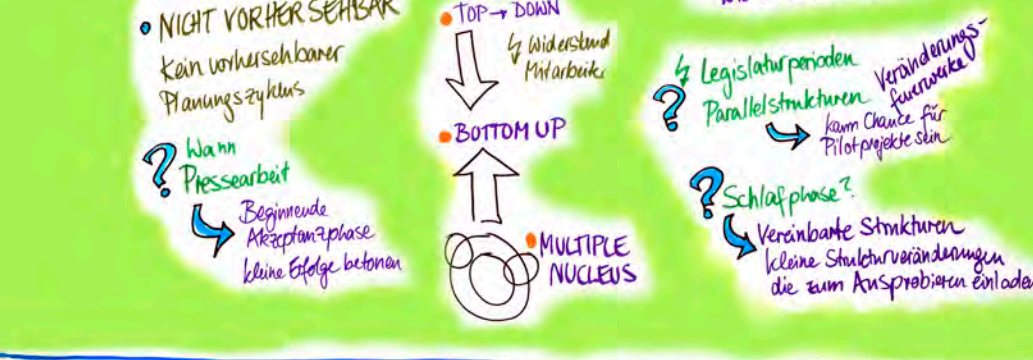 NICHT VORHERSEHBAR
Kein vorhersehbarer
Planungszyklus
? Wann
Pressearbeit
Beginnende
Akzeptanzphase
kleine Erfolge betonen
TOP → DOWN
Widerstand
Mitarbeiter
BOTTOM UP
MULTIPLE
NUCLEUS
Legislaturperioden
? Parallelstrukturen
Veränderungs-
feuerwerke
kann Chance für
Pilotprojekte sein
? Schlafphase?
Vereinbarte Strukturen
kleine Strukturveränderungen
die zum Ausprobieren einlade